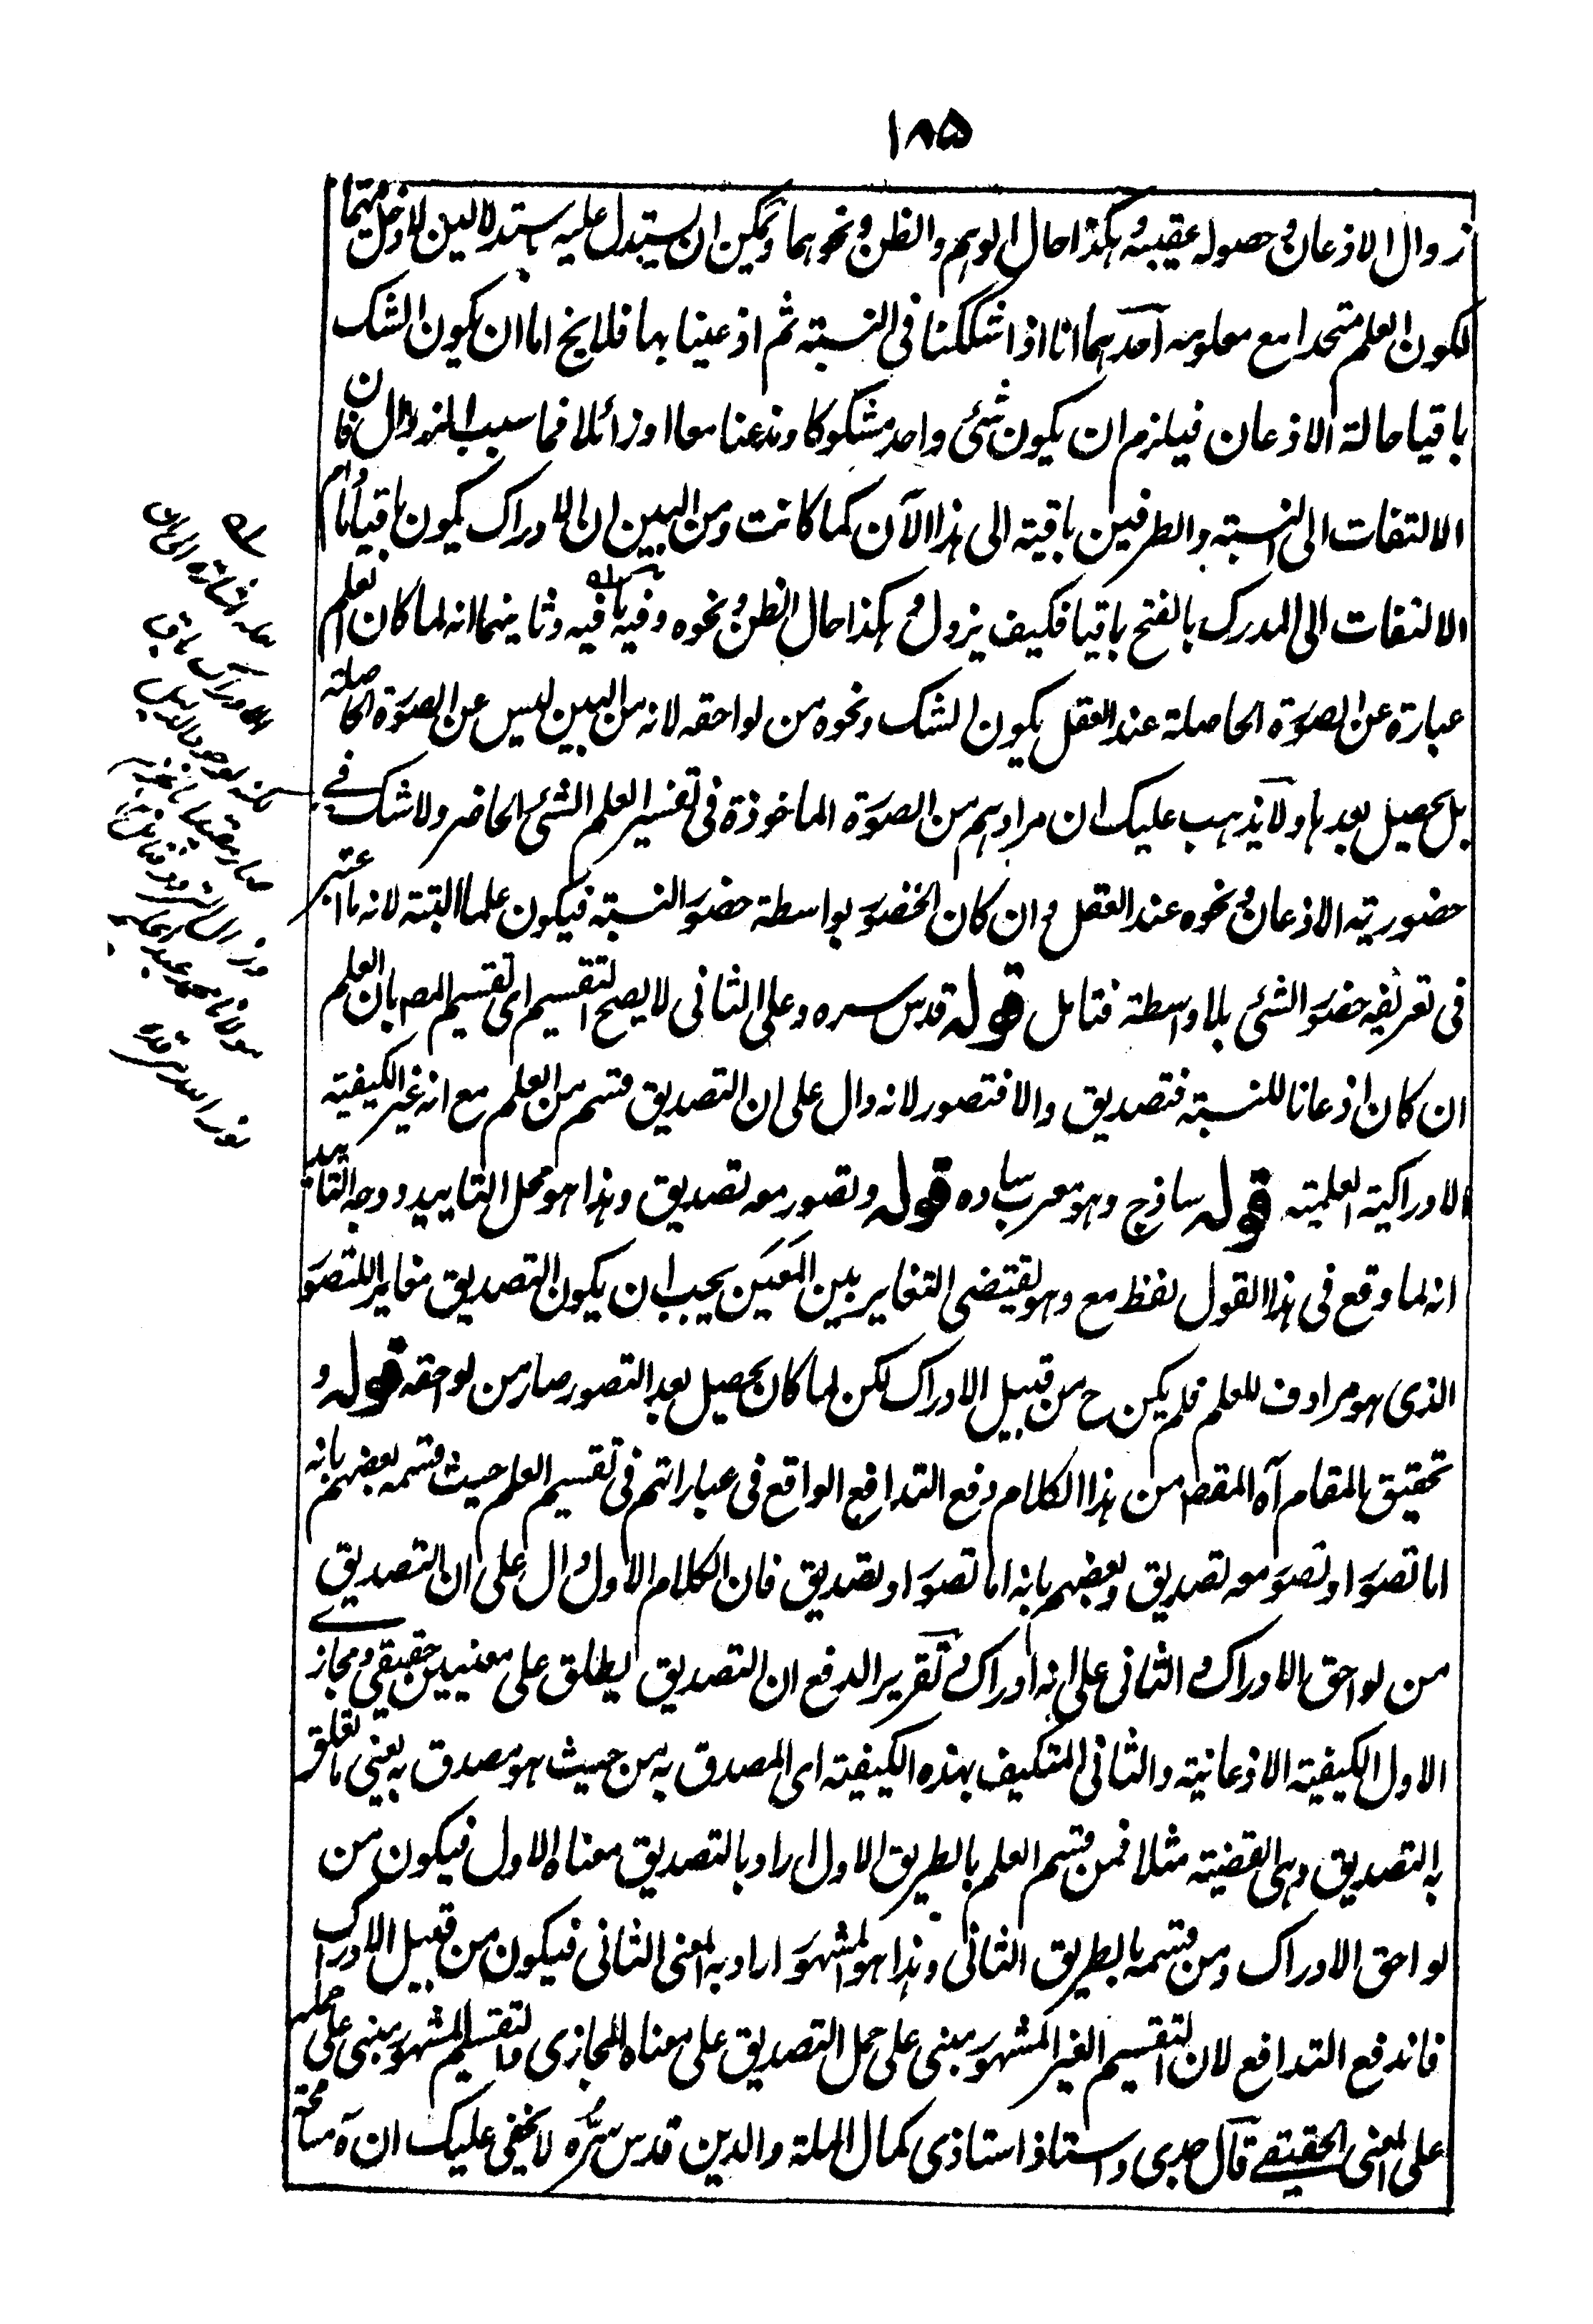 ۱۸۵
زوال الاذعان و حصوله عقيبه و هكذا حال الوهم والظن و نحوهما و يمكن ان يستدل عليه باستدلالين لا دخل فيهما
لكون العلم متحدا مع معلومه احدهما انا اذا شككنا فى النسبته ثم اذعنا بها فلا يخ اما ان يكون الشك
باقيا حالة الاذعان فيلزم ان يكون شئ واحد مشكوكا و مذعنا معا او زائلا فما سبب الزوال فان
الالتفات الى النسبته والطرفين باقية الى هذا الآن كما كانت و من البين ان الادراك يكون باقيا مادام
الالتفات الى المدرك بالفتح باقيا فكيف يزول و هكذا حال الظن و نحوه و فيه ما فيه و ثانيهما انه لما كان العلم
عبارة عن الصورة الحاصلة عند العقل يكون الشك و نحوه من لواحقه لانه من البين ليس عن الصورة الحاصلته
بل يحصل بعدها و لا يذهب عليك ان مرادهم من الصورة الماخوذة فى تفسير العلم الشئ الحاضر و لا شك فى
حضورية الاذعان و نحوه عند العقل و ان كان الحضور بواسطة حضور النسبته فيكون علما البته لانه ما اعتبر
فى تعريفه حضور الشئ بلا واسطة فتامل قوله قدس سره و على الثانى لا يصح التقسيم اى تقسيم المص بان العلم
ان كان اذعانا للنسبته فتصديق والا فتصور لانه دال على ان التصديق قسم من العلم مع انه غير الكيفيته
الادراكية العلميته قوله ساذج و هو معرب ساده قوله و تصور معه تصديق و هذا هو محل التاييد و وجه التاييد
انه لما وقع فى هذا القول لفظ مع و هو يقتضى التغاير بين المعين يجب ان يكون التصديق مغايرا للتصور
الذى هو مرادف للعلم فلم يكن ح من قبيل الادراك لكن لما كان يحصل بعد التصور صار من لواحقه قوله و
تحقيق المقام آه المقصد من هذا الكلام دفع التدافع الواقع فى عباراتهم فى تقسيم العلم حيث قسمه بعضهم بانه
اما تصور او تصور معه تصديق و بعضهم بانه اما تصور او تصديق فان الكلام الاول دال على ان التصديق
من لواحق الادراك و الثانى على انه ادراك و تقرير الدفع ان التصديق يطلق على معنيين حقيقى و مجازى
الاول الكيفية الاذعانية والثانى المتكيف بهذه الكيفية اى المصدق به من حيث هو مصدق به يعنى ما تعلق
به التصديق و هى القضيته مثلا فمن قسم العلم بالطريق الاول اراد بالتصديق معناه الاول فيكون من
لواحق الادراك و من قسمه بالطريق الثانى و هذا هو المشهور اراد به المعنى الثانى فيكون من قبيل الادراك
فاندفع التدافع لان التقسيم الغير المشهور مبنى على حمل التصديق على معناه المجازى والتقسيم المشهور مبنى على حمله
على المعنى الحقيقى قال جدى و استاذ استاذى كمال الملة والدين قدس سره لا يخفى عليك ان آه مسامحة
الادراك باق
مولانا محمد عبد الحكيم
نور الله مرقده